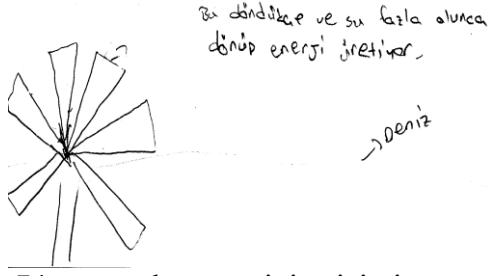 Bu döndükçe ve su fazla olunca
dönüp enerji üretiyor.
→Deniz